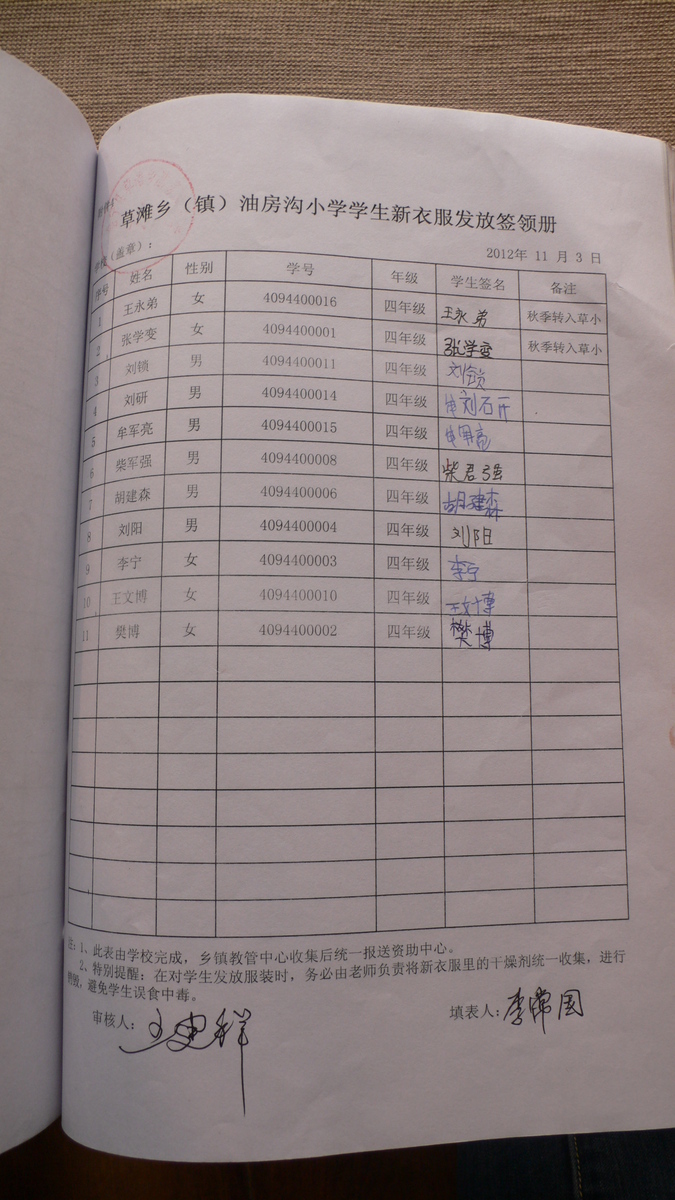 草滩乡（镇）油房沟小学学生新衣服发放签领册
（盖章）： 2012年 11 月 3 日
序号 姓名 性别 学号 年级 学生签名 备注
1 王永弟 女 4094400016 四年级 王永弟 秋季转入草小
2 张学变 女 4094400001 四年级 张学变 秋季转入草小
3 刘锁 男 4094400011 四年级 刘锁
4 刘研 男 4094400014 四年级 刘石开
5 牟军亮 男 4094400015 四年级
6 柴军强 男 4094400008 四年级 柴君强
7 胡建森 男 4094400006 四年级 胡建森
8 刘阳 男 4094400004 四年级 刘阳
9 李宁 女 4094400003 四年级 李宁
10 王文博 女 4094400010 四年级 王文博
11 樊博 女 4094400002 四年级 樊博
注：1、此表由学校完成，乡镇教管中心收集后统一报送资助中心。
2、特别提醒：在对学生发放服装时，务必由老师负责将新衣服里的干燥剂统一收集，进行
销毁，避免学生误食中毒。
审核人： 填表人：李常国